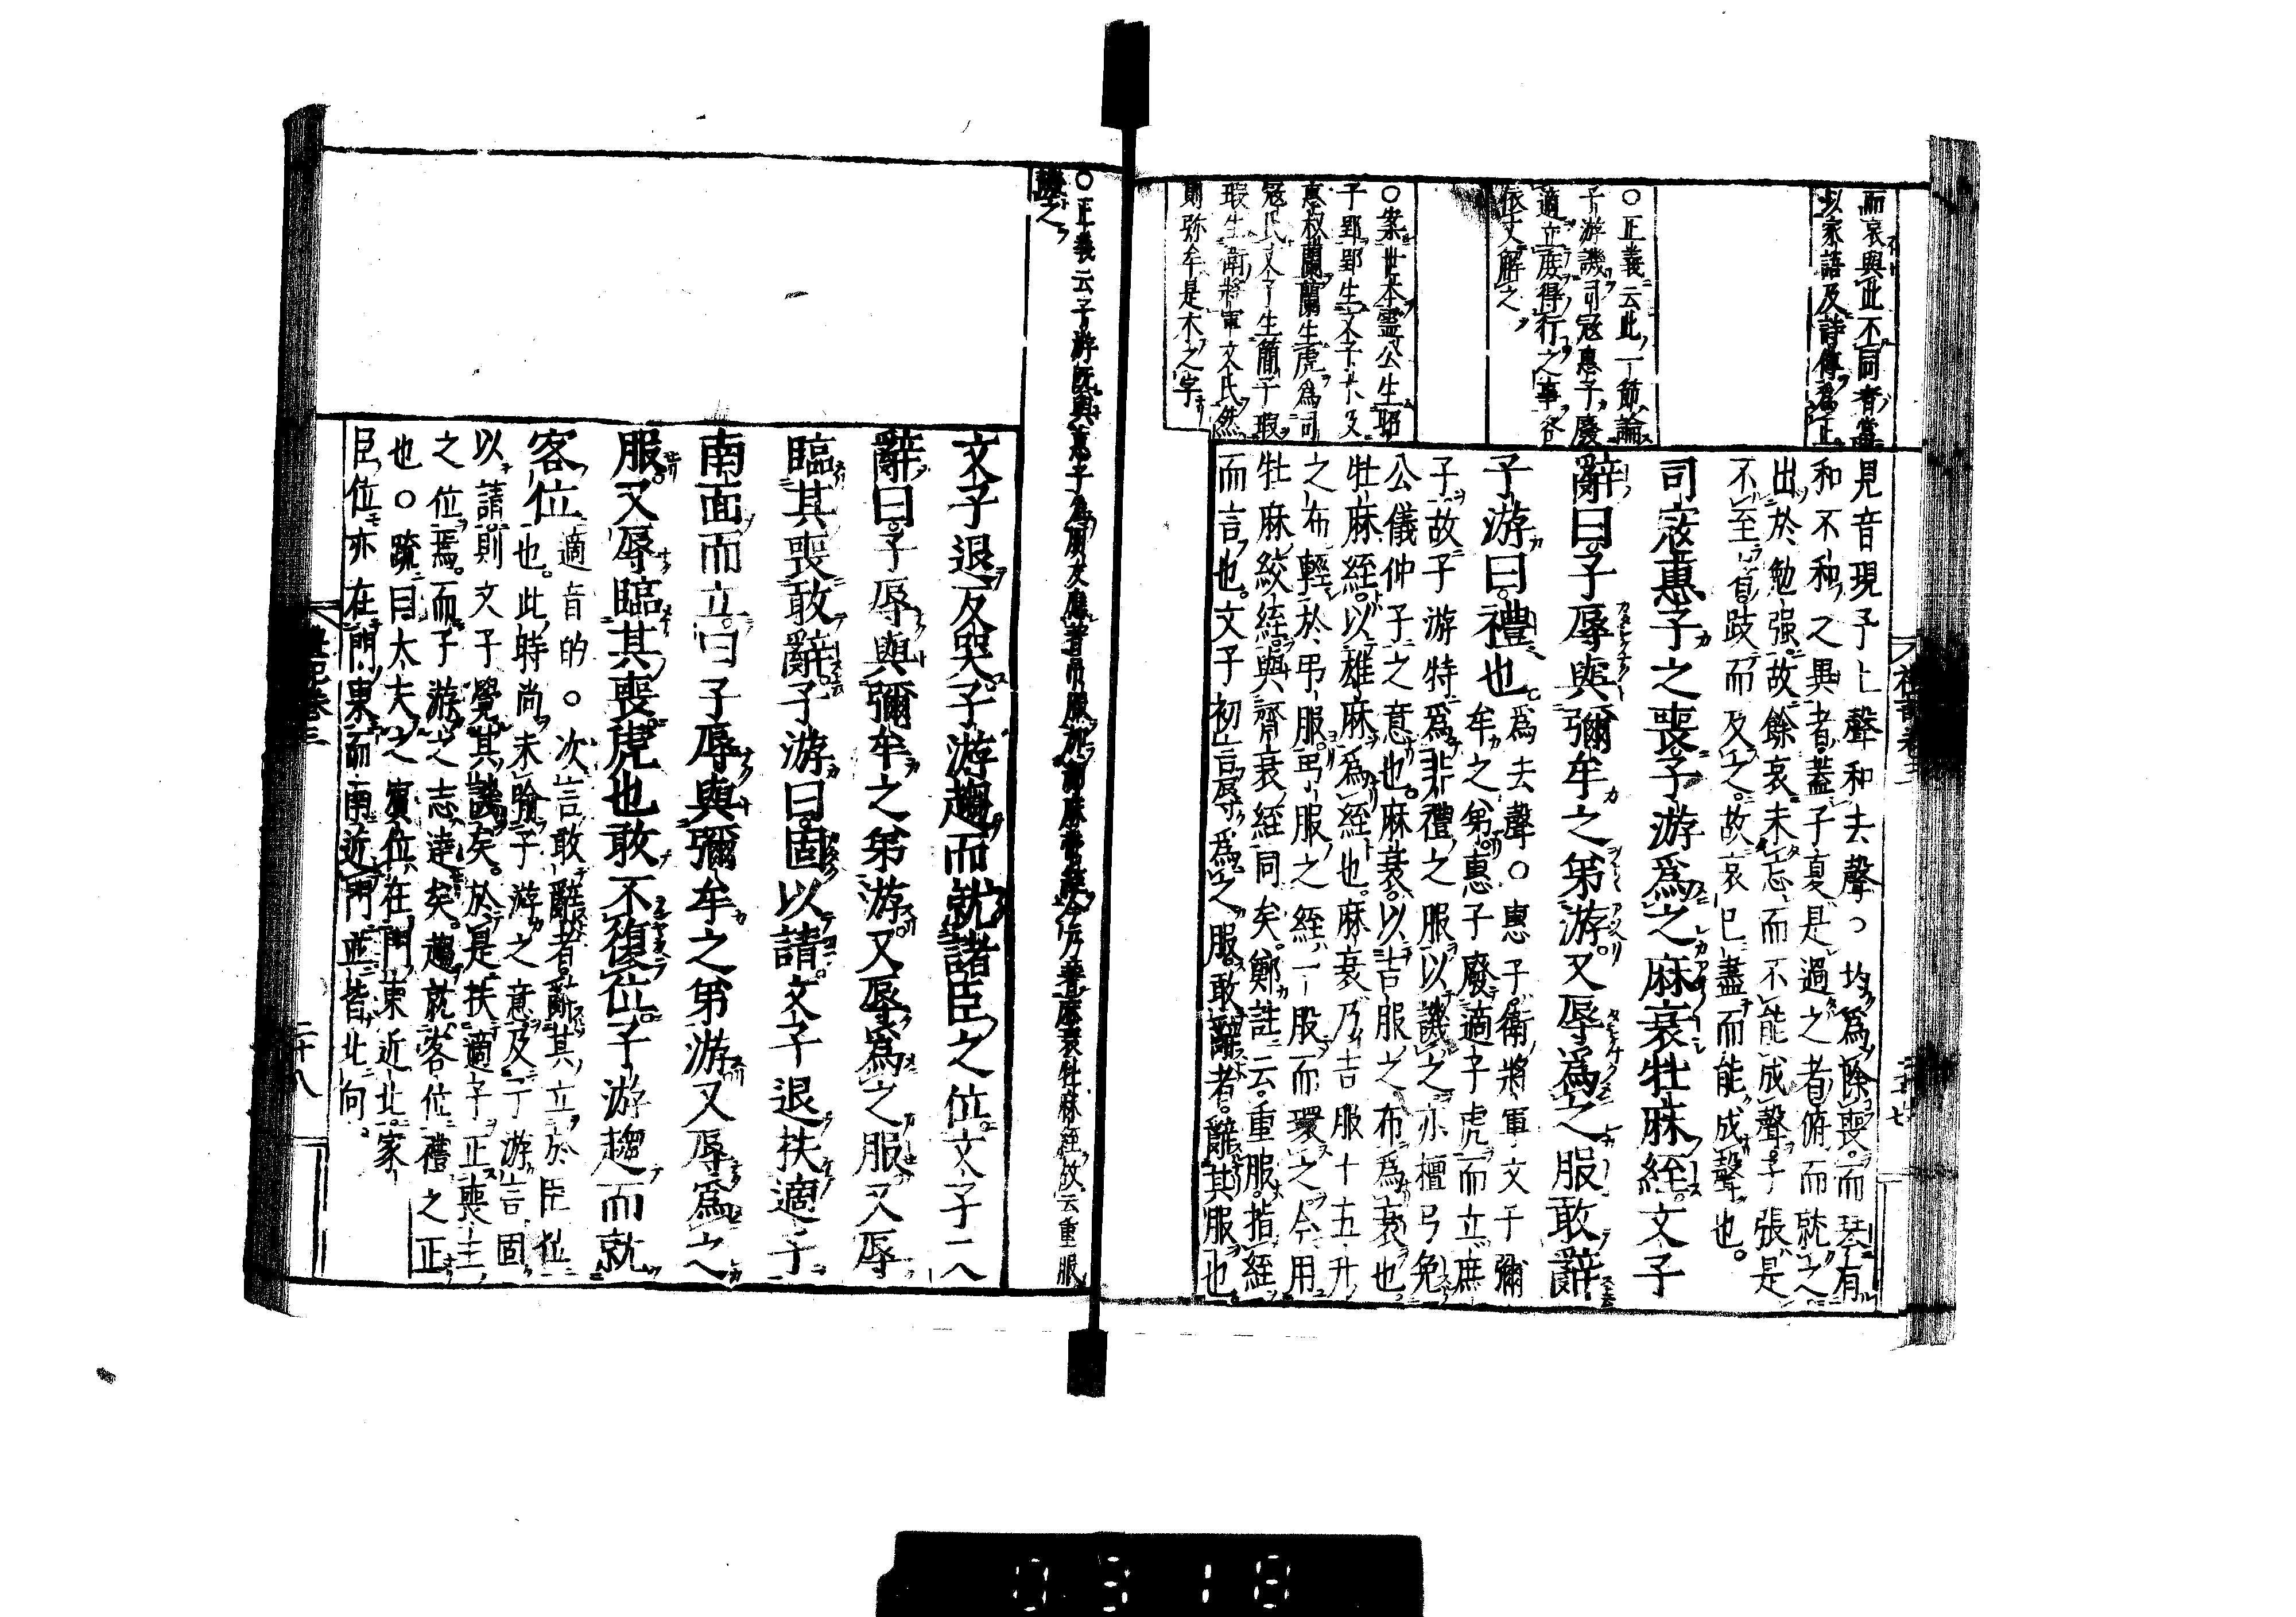 而哀與此不同者當
以家語及詩傳爲正
○正義云此一節論
子游譏司寇惠子廢
適立庶得行之事各
依文解之
○案世本靈公生昭
子郢郢生文子木及
惠叔蘭蘭生虎爲司
寇氏文子生簡子瑕
瑕生衛將軍文氏然
則弥牟是木之字
見音現予上聲和去聲○均爲除喪而琴有
和不和之異者蓋子夏是過之者俯而就之
出於勉强故餘哀未忘而不能成聲子張是
不至者跂而及之故哀已盡而能成聲也
司寇惠子之喪子游爲之麻衰牡麻絰文子
辭曰子辱與彌牟之弟游又辱爲之服敢辭
子游曰禮也
爲去聲○惠子衛將軍文子彌
牟之弟惠子廢適子虎而立庶
子故子游特爲非禮之服以譏之亦檀弓免
公儀仲子之意也麻衰以吉服之布爲衰也
牡麻絰以雄麻爲絰也麻衰乃吉服十五升
之布輕於弔服弔服之絰一股而環之今用
牡麻絞絰與齊衰絰同矣鄭註云重服指絰
而言也文子初言辱爲之服敢辭者辭其服也
禮記卷三
二十七
○正義云子游既與惠子爲朋友應著弔服加
緦麻帶絰今乃著麻衰牡麻絰故云重服
譏之
文子退反哭子游趨而就諸臣之位文子又
辭曰子辱與彌牟之弟游又辱爲之服又辱
臨其喪敢辭子游曰固以請文子退扶適子
南面而立曰子辱與彌牟之弟游又辱爲之
服又辱臨其喪虎也敢不復位子游趨而就
客位
適音的○次言敢辭者辭其立於臣位
也此時尚未喻子游之意及子游言固
以請則文子覺其譏矣於是扶適子正喪主
之位焉而子游之志達矣趨就客位禮之正
也○疏曰大夫之賓位在門東近北家
臣位亦在門東而南近門並皆北向
禮記卷三
二十八
0318